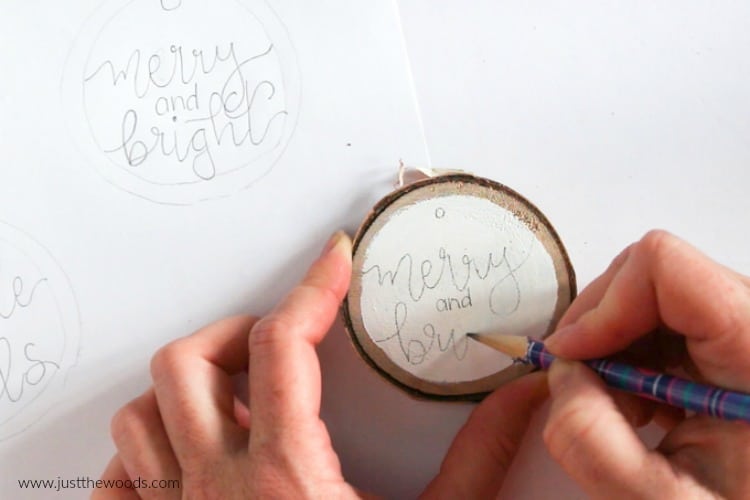 merry
and
bright
merry
and
bri
www.justthewoods.com